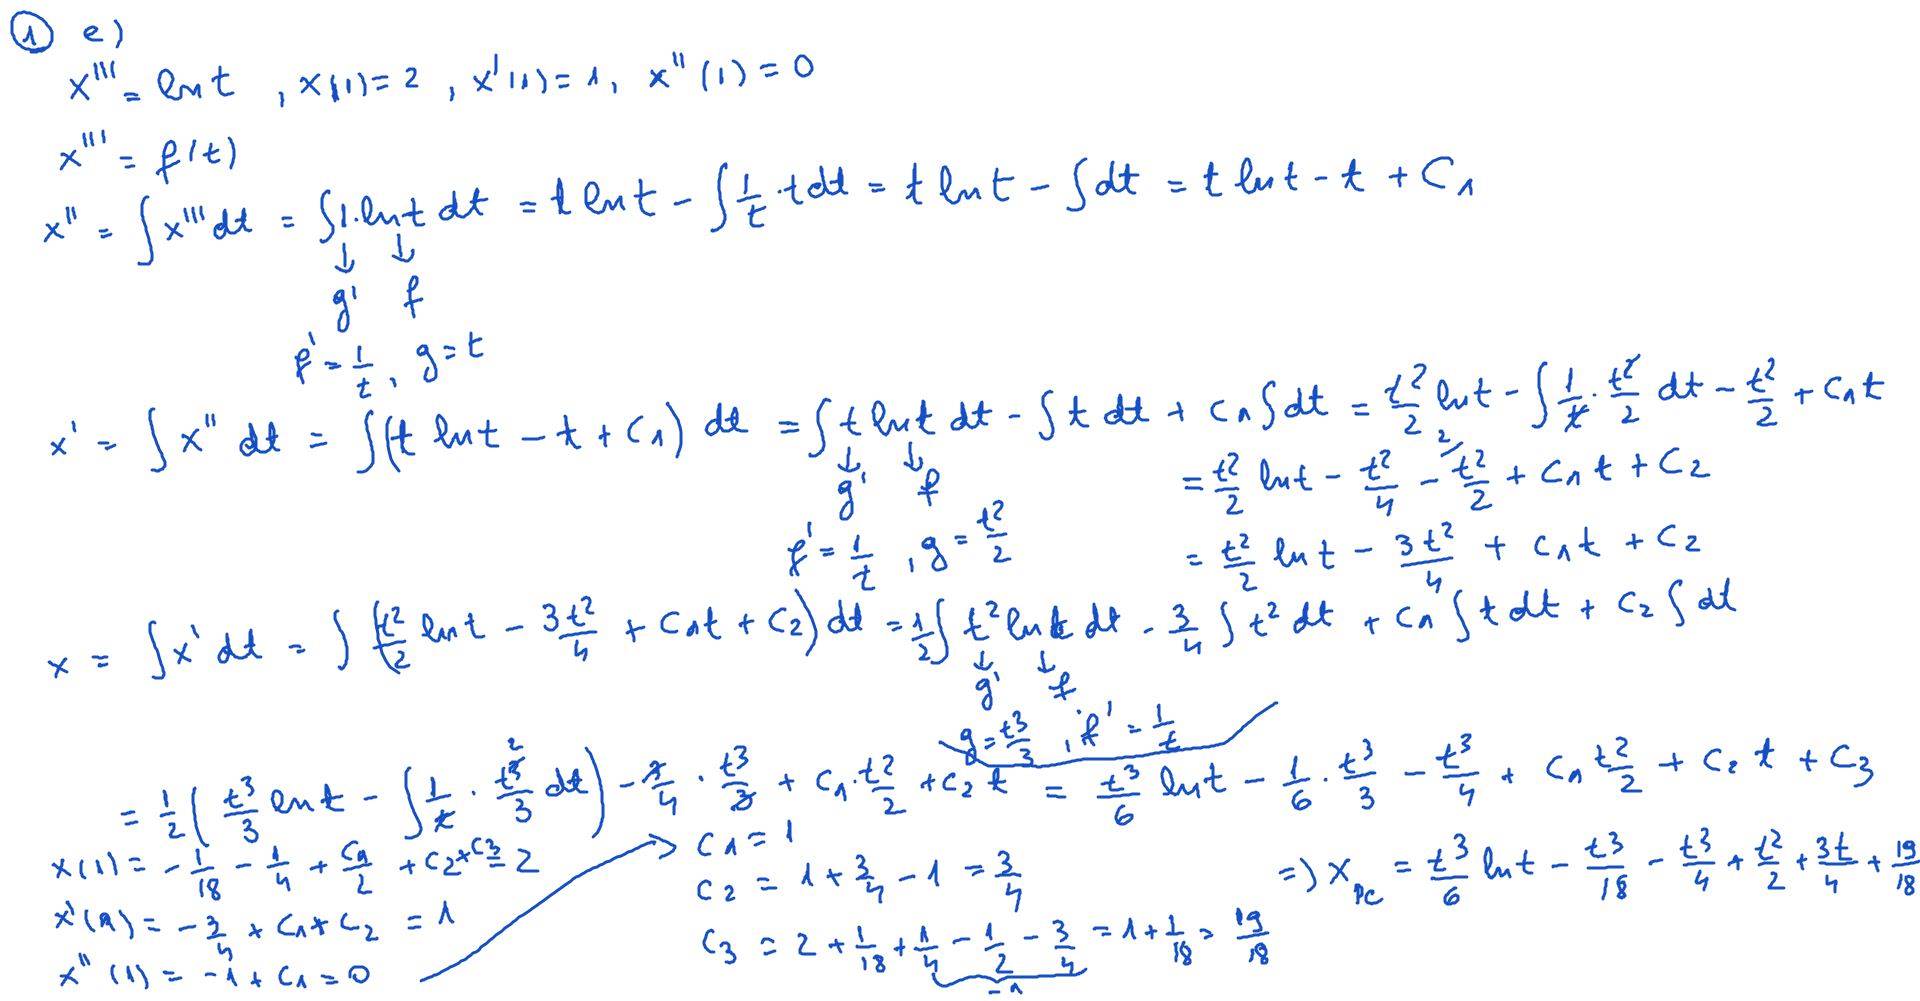 ① e)
x''' = ln t , x(1) = 2 , x'(1) = 1, x''(1) = 0
x''' = f(t)
x'' = ∫ x''' dt = ∫ 1·ln t dt = t ln t - ∫ 1/t · t dt = t ln t - ∫ dt = t ln t - t + C₁
↓ ↓
g' f
f' = 1/t , g = t
x' = ∫ x'' dt = ∫ (t ln t - t + C₁) dt = ∫ t ln t dt - ∫ t dt + C₁ ∫ dt = t²/2 ln t - ∫ 1/t · t²/2 dt - t²/2 + C₁t
↓ ↓
g' f
= t²/2 ln t - t²/4 - ²⁄ t²/2 + C₁ t + C₂
f' = 1/t , g = t²/2
= t²/2 ln t - 3t²/4 + C₁t + C₂
x = ∫ x' dt = ∫ (t²/2 ln t - 3t²/4 + C₁t + C₂) dt = 1/2 ∫ t² ln t dt - 3/4 ∫ t² dt + C₁ ∫ t dt + C₂ ∫ dt
↓ ↓
g' f
g = t³/3 , f' = 1/t
= 1/2 (t³/3 ln t - ∫ 1/t · t³/3 dt) - 3/4 · t³/3 + C₁ · t²/2 + C₂ t = t³/6 ln t - 1/6 · t³/3 - t³/4 + C₁ t²/2 + C₂ t + C₃
x(1) = - 1/18 - 1/4 + C₁/2 + C₂ + C₃ = 2
x'(1) = - 3/4 + C₁ + C₂ = 1
x''(1) = -1 + C₁ = 0
→ C₁ = 1
C₂ = 1 + 3/4 - 1 = 3/4
C₃ = 2 + 1/18 + 1/4 - 1/2 - 3/4 = 1 + 1/18 = 19/18
-1
=> x_PC = t³/6 ln t - t³/18 - t³/4 + t²/2 + 3t/4 + 19/18